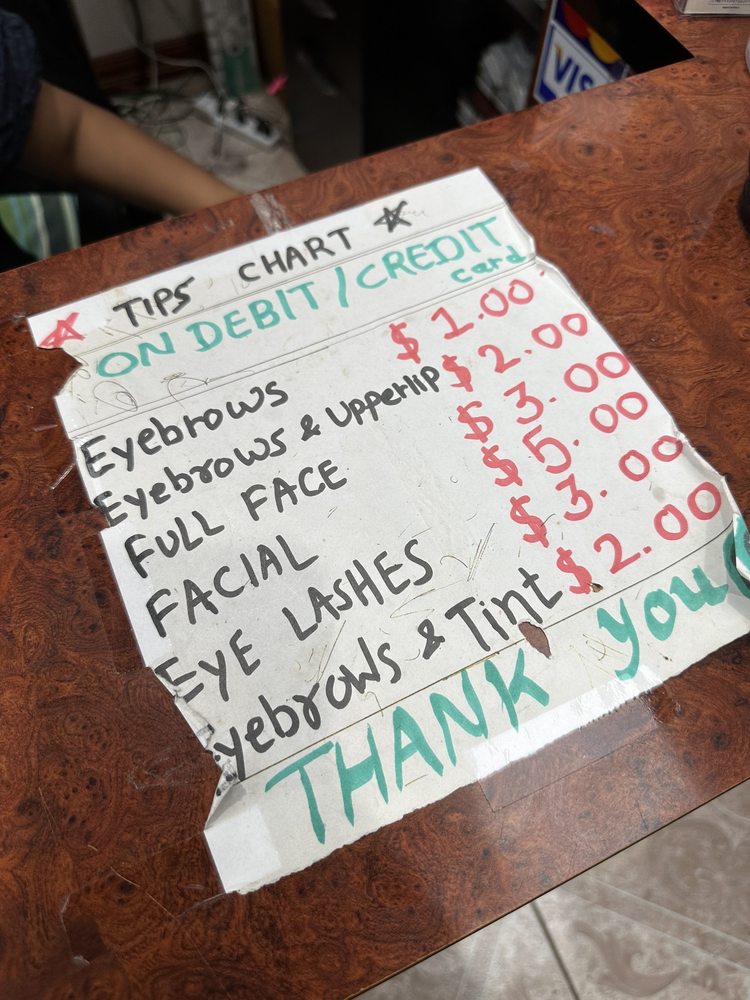 VISA
TIPS CHART
ON DEBIT/CREDIT card
Eyebrows $1.00
Eyebrows & Upperlip $2.00
FULL FACE $3.00
FACIAL $5.00
EYE LASHES $3.00
Eyebrows & Tint $2.00
THANK You